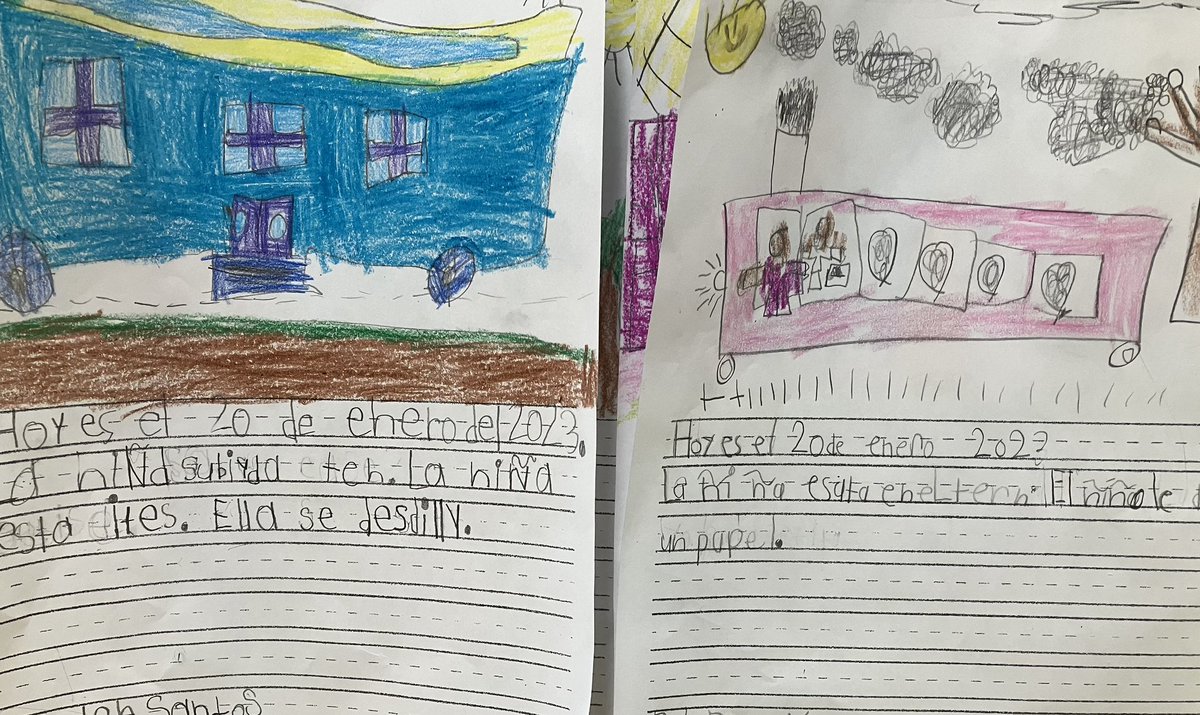 Hoy es el 20 de enero del 2023.
niña subirda eten. La niña
esta dites. Ella se desdilly.
Santos
Hoy es el 20 de enero 2023
la niña esata en el tern. El niño te
un papel.